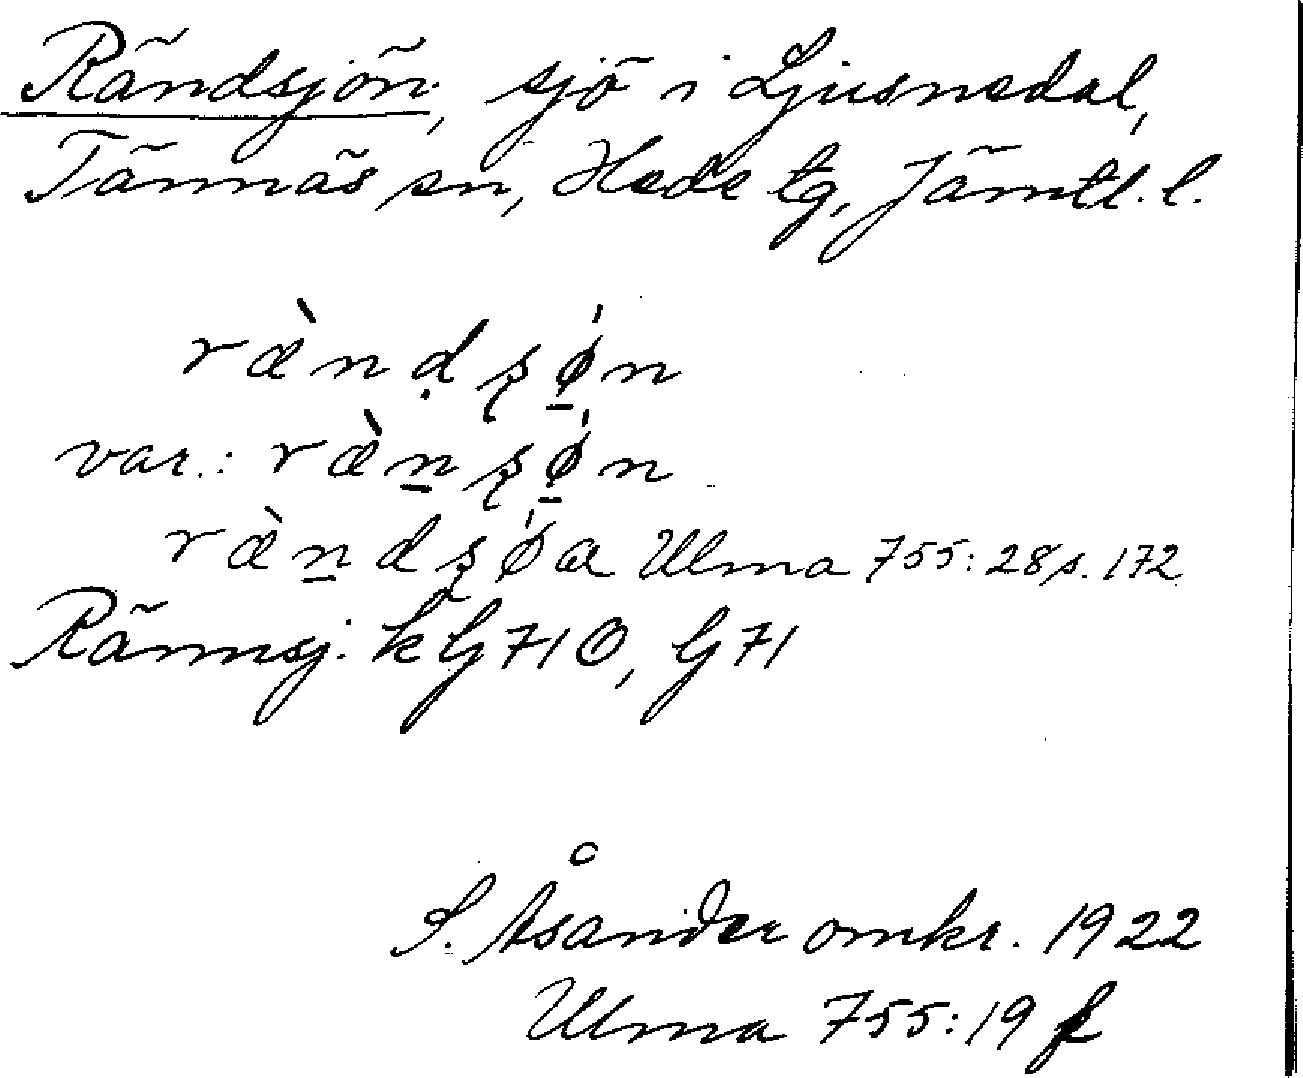 Rändsjön, sjö i Ljusnedal,
Tännäs sn, Hede tg, Jämtl. l.
ræ̀nḍʂǿ̱n
var.: ræ̀ṉʂǿ̱n
ræ̀ṉdʂǿa Ulma 755:28 s. 172
Rännsj. k G 71 O, G 71
S. Åsander omkr. 1922
Ulma 755:19 f